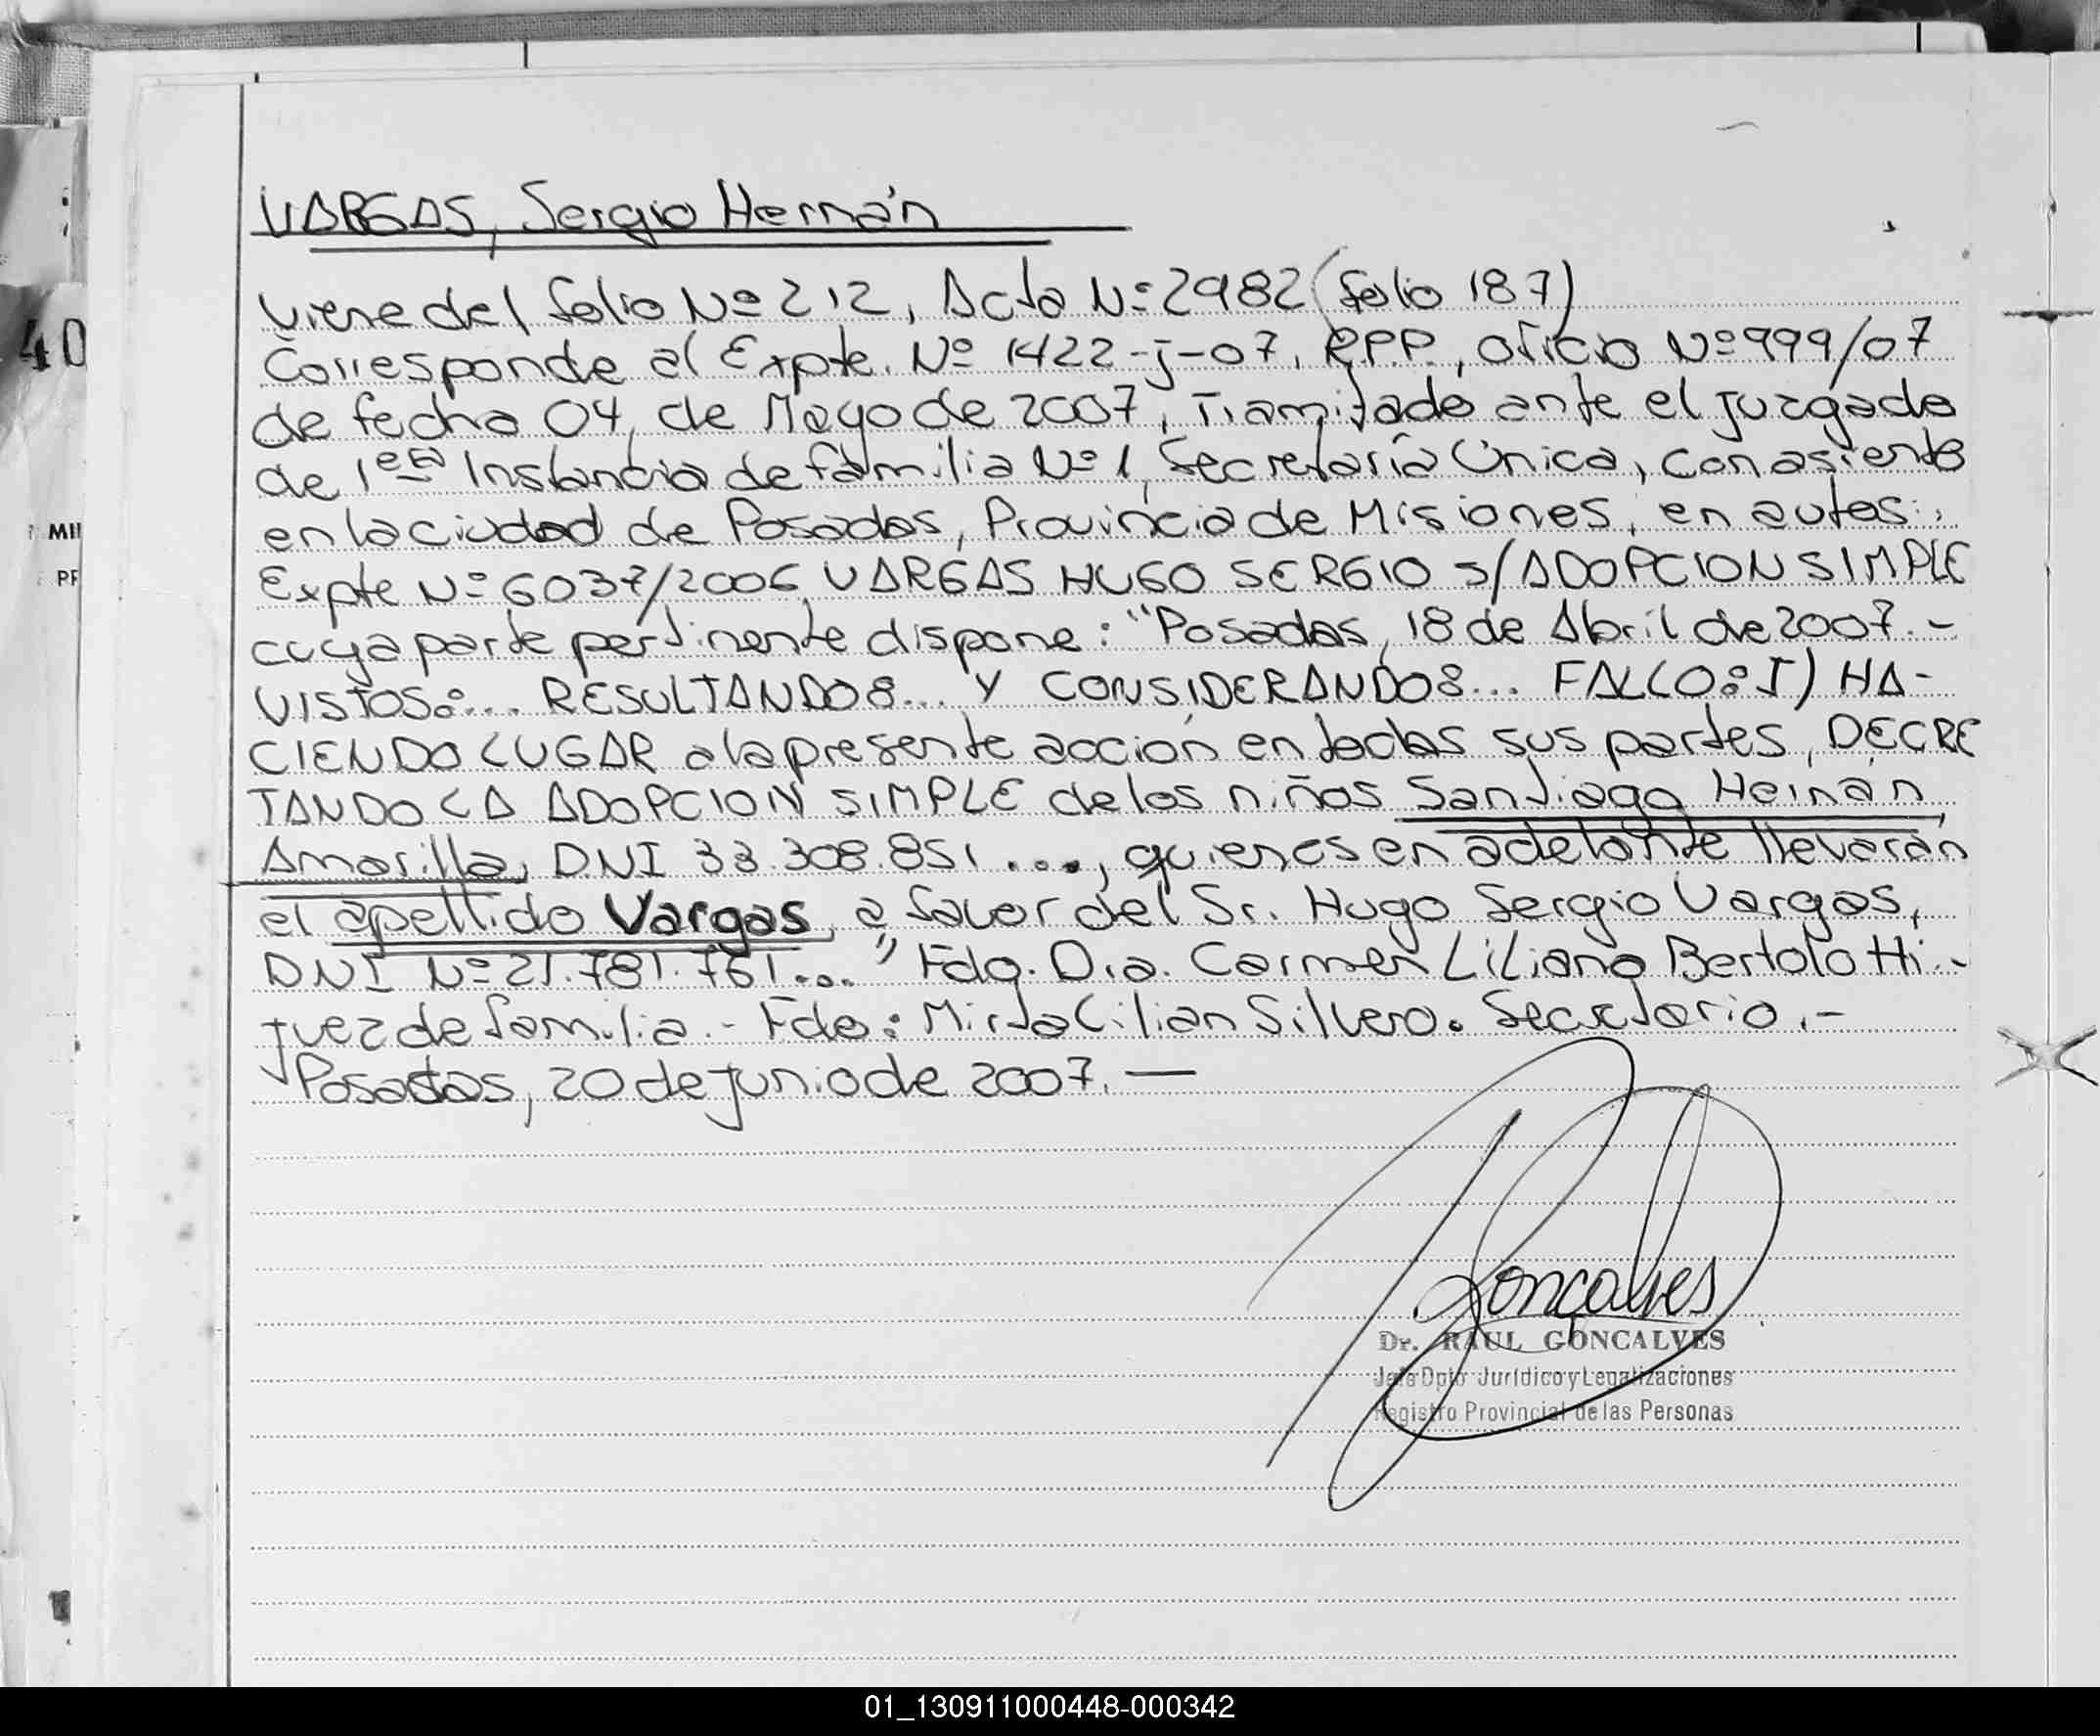 VARGAS, Sergio Hernán
viene del folio Nº 212, Acta Nº 2982 (folio 187)
Corresponde al Expte. Nº 1422-j-07, RPP, oficio Nº 999/07
de fecha 04, de Mayo de 2007, Tramitado ante el juzgado
de 1era Instancia de familia Nº 1, Secretaría Única, con asiento
en la ciudad de Posadas, Provincia de Misiones, en autos:,
Expte Nº 6037/2006 VARGAS HUGO SERGIO s/ADOPCION SIMPLE
cuya parte pertinente dispone: "Posadas, 18 de Abril de 2007.-
VISTOS:... RESULTANDO:... Y CONSIDERANDO:... FALLO: I) HA-
CIENDO LUGAR a la presente acción en todas sus partes, DECRE
TANDO LA ADOPCION SIMPLE de los niños Santiago Hernán
Amarilla, DNI 33.308.851..., quienes en adelante llevarán
el apellido Vargas, a favor del Sr. Hugo Sergio Vargas,
DNI Nº 21.781.761..." Fdo. Dra. Carmen Liliana Bertolotti.-
juez de familia.- Fdo: Mirta Lilian Silvero. Secretario.-
Posadas, 20 de junio de 2007.—
Goncalves
Dr. RAUL GONCALVES
Jefe Dpto Jurídico y Legalizaciones
Registro Provincial de las Personas
40
MI
PF
01_130911000448-000342